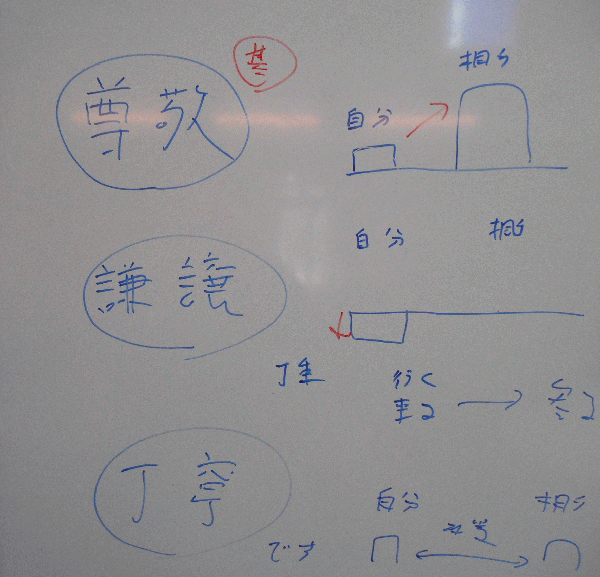 尊敬
相手
自分
自分 相手
謙譲
丁重
行く
来る → 参る
丁寧
自分 相手
対等
です